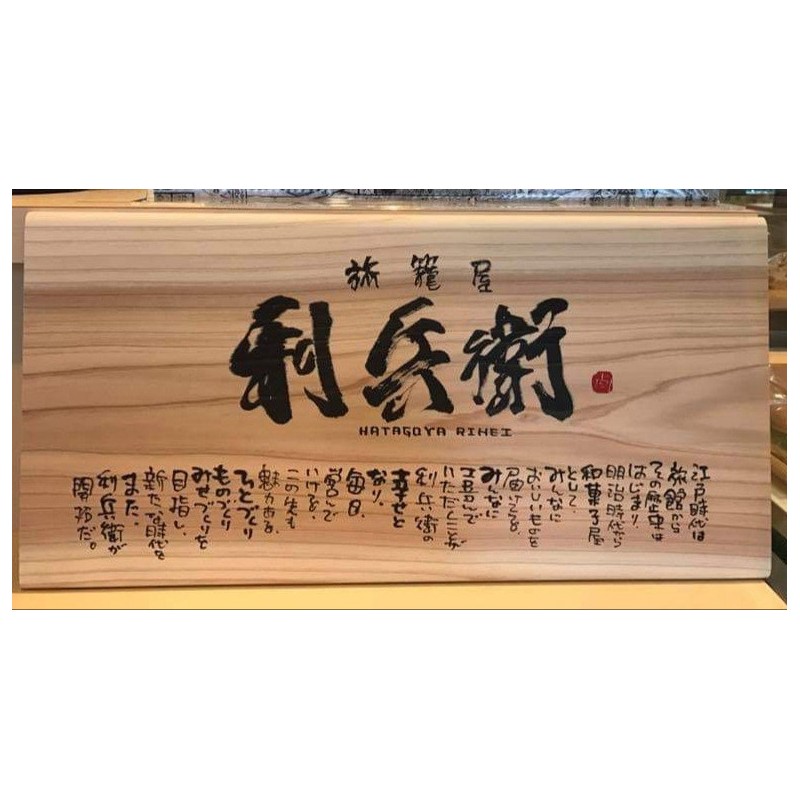 旅籠屋
利兵衛
HATAGOYA RIHEI
江戸時代は
旅館から
その歴史は
はじまり、
明治時代から
和菓子屋
として、
みんなに
おいしいものを
届けてる。
みんなに
喜んで
いただくことが
利兵衛の
幸せと
なり、
毎日、
営んで
いける。
この先も
魅力ある、
ひとづくり
ものづくり
みせづくりを
目指し、
新たな時代を
また、
利兵衛が